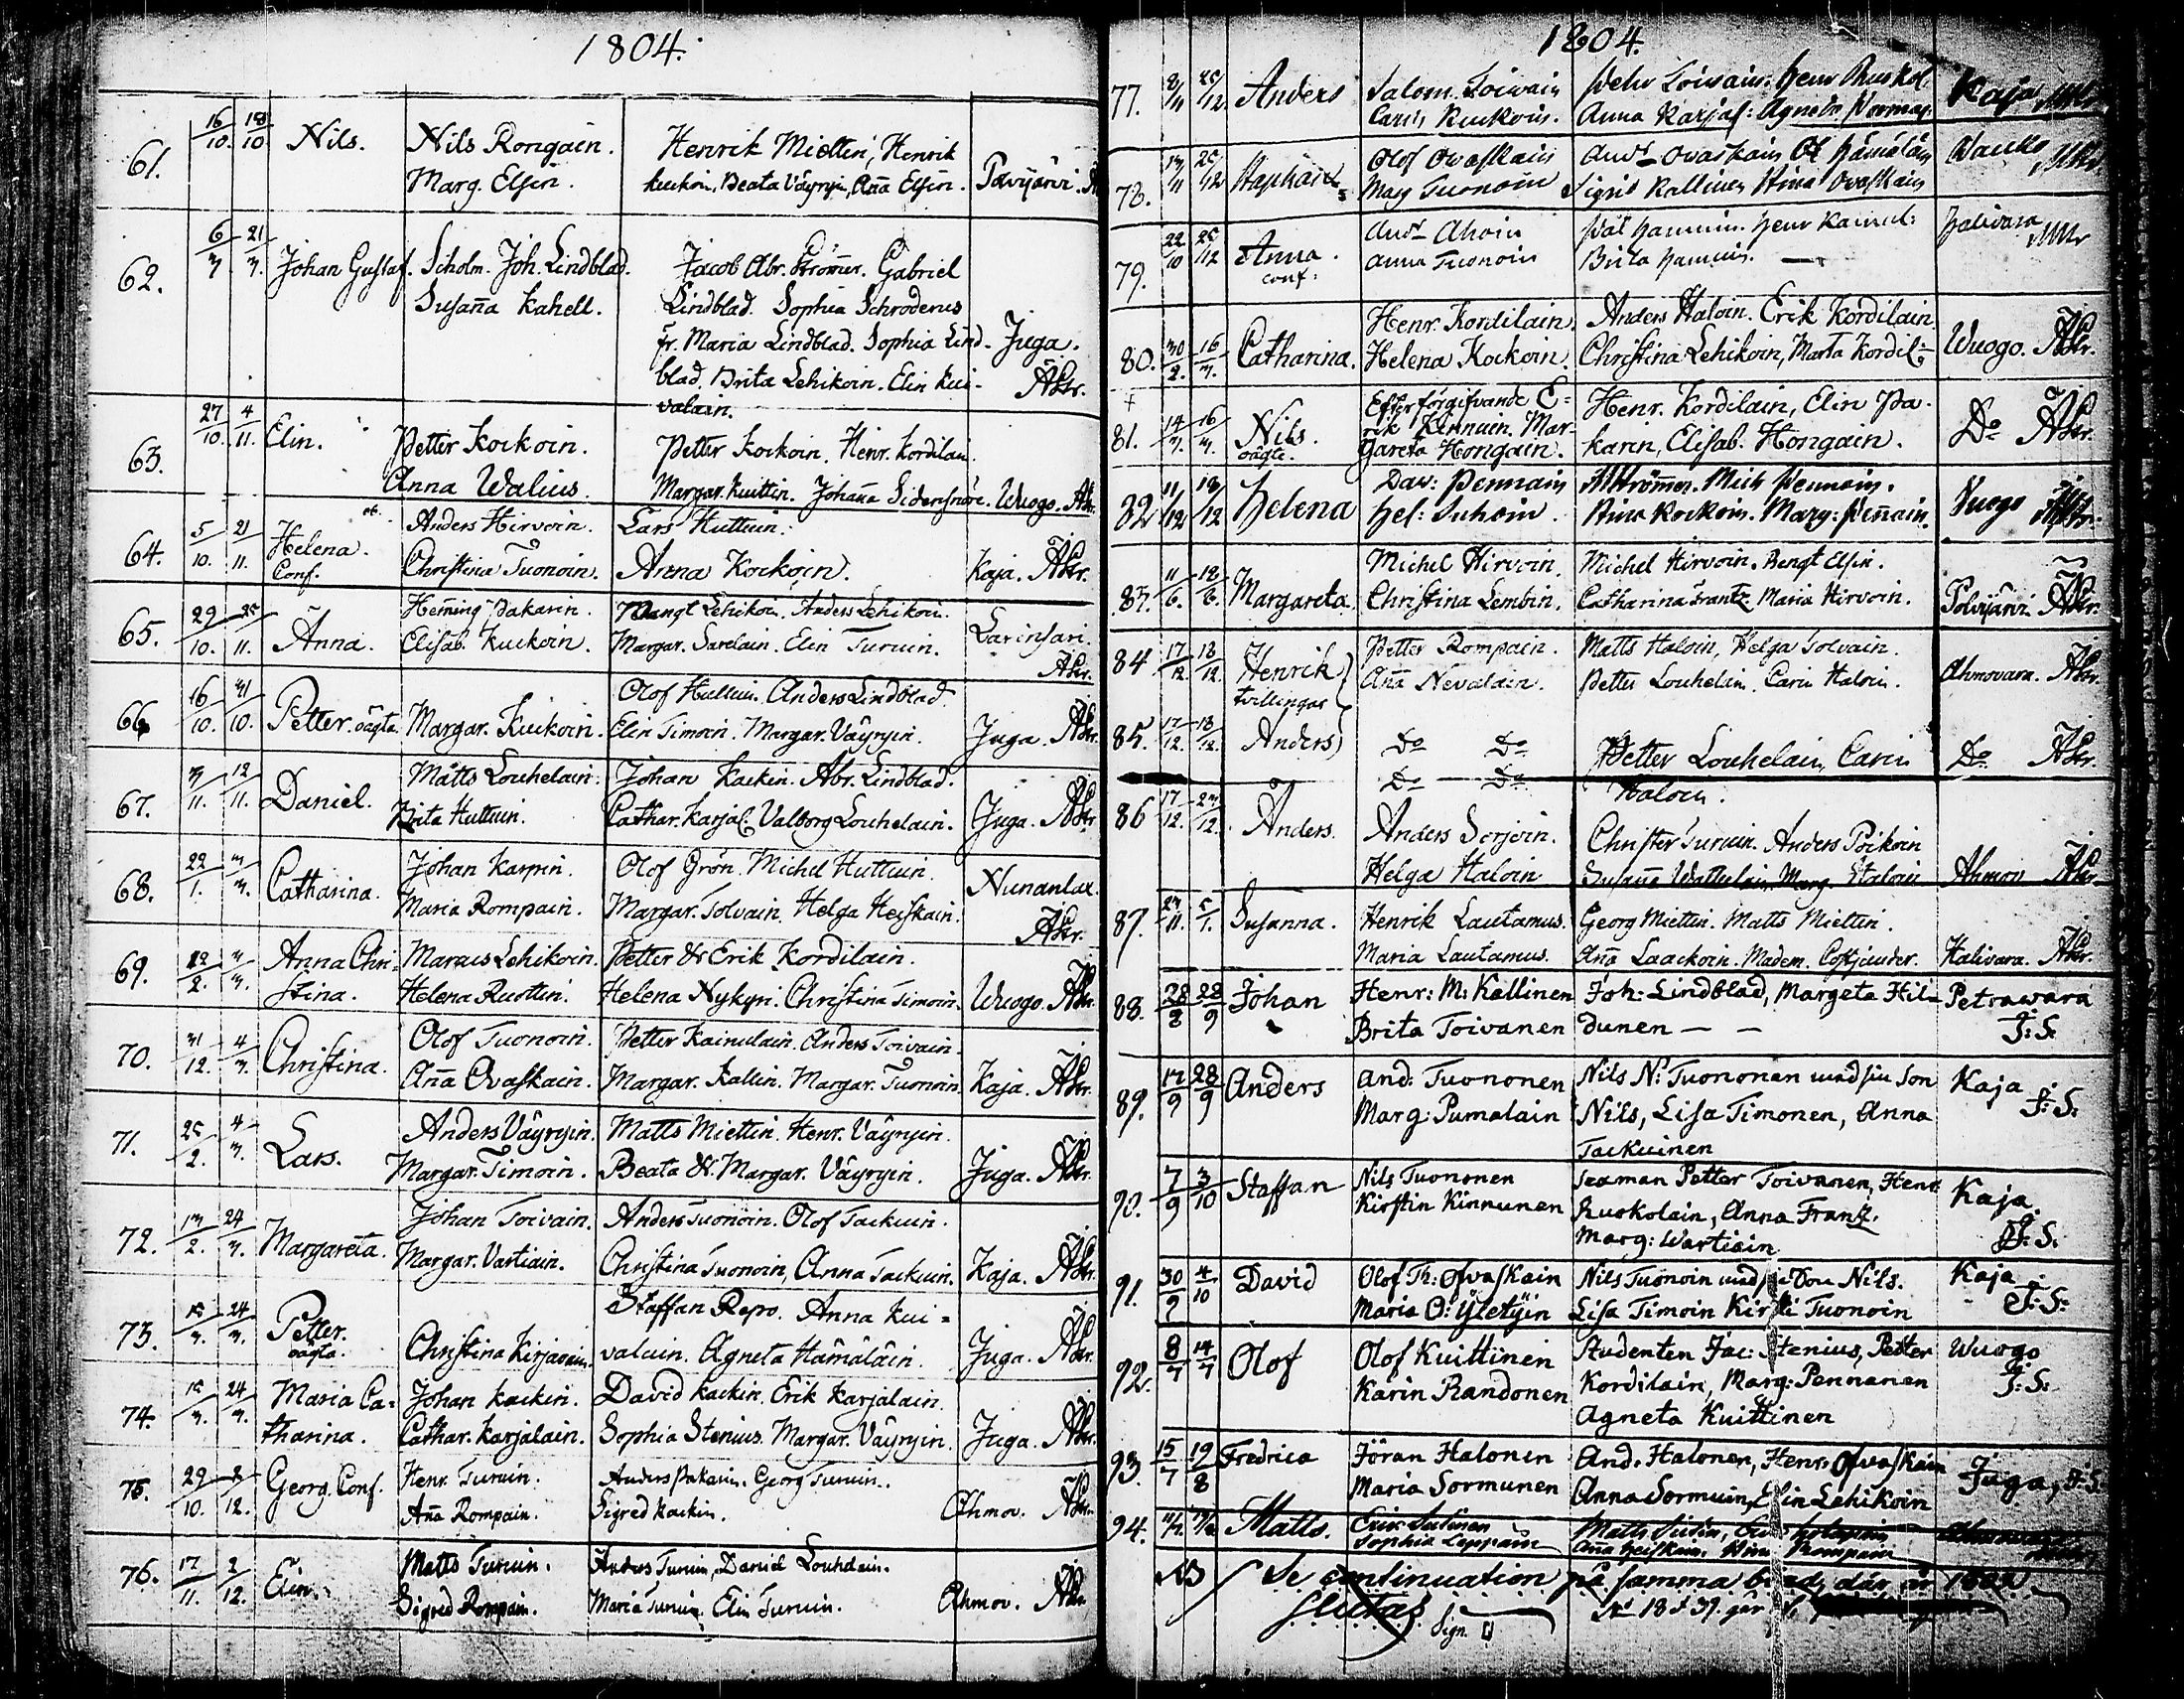 1804.
61. 16/10. 18/10 Nils. Nils Rongain. Henrik Miettin, Henrik
Marg. Elsin. kuckoin, Beata Väyryin, Aña Elsin. Polvijärvi.
62. 6/3 21/3. Johan Gustaf. Scholm. Joh. Lindblad. Jacob Abr. Strömer. Gabriel
Susaña Kahell. Lindblad. Sophia Schroderus
fr. Maria Lindblad. Sophia Lind- Juga.
blad. Brita Lehikoin. Elin kui- Abr.
valain.
63. 27/10. 4/11. Elin. Petter Kockoin. Petter Kockoin. Henr. Kordilain.
Anna Walius. Margar. Kuittin. Johaña Sidensnöre. Wuogo. Abr.
64. 5/10. 21/11. Helena. Anders Hirvoin. Lars Huttuin.
Conf. Christina Tuonoin. Anna Kockoin. Kaja. Abr.
65. 29/10. 25/11. Anna. Heming Pakarin. Mangt Lehikoin. Anders Lehikoin.
Elisab. Kuckoin. Margar. Savelain. Elin Turuin. Larinsari.
Abr.
66. 16/10. 31/10. Petter. oägta Margar. Kuckoin. Olof Huttuin. Anders Lindblad.
Elin Timoin. Margar. Väyryin. Juga. Abr.
67. 3/11. 12/11. Daniel. Matts Louhelain. Johan Kackin. Abr. Lindblad.
Brita Huttuin. Cathar. Karjal. Valborg Louhelain. Juga. Abr.
68. 22/1. 3/3. Catharina. Johan Karpin. Olof Grön. Michel Huttuin. Nunanlax.
Maria Rompain. Margar. Tolvain. Helga Heiskain. Abr.
69. 22/2. 3/3. Anna Chri- Marcus Lehikoin. Petter & Erik Kordilain.
stina. Helena Ruottin. Helena Nykyri. Christina Timoin. Wuogo. Abr.
70. 31/12. 4/3. Christina. Olof Tuonoin. Petter Kainulain. Anders Toivain.
Aña Ovaskain. Margar. Kallin. Margar. Tuonoin. Kaja. Abr.
71. 25/2. 4/3. Lars. Anders Väyryin. Matts Miettin. Henr. Väyryin.
Margar. Timoin. Beata & Margar. Väyryin. Juga. Abr.
72. 13/2. 24/3. Margareta. Johan Toivain. Anders Tuonoin. Olof Tackuin.
Margar. Vartiain. Christina Tuonoin, Anna Tackuin. Kaja. Abr.
73. 15/3. 24/3. Petter. Staffan Repo. Anna Kui-
oägta. Christina Kirjavain. valain. Agneta Hämäläin. Juga. Abr.
74. 15/3. 24/3. Maria Ca- Johan Kackin. David Kackin. Erik Karjalain.
tharina. Cathar. Karjalain. Sophia Stenius. Margar. Väyryin. Juga. Abr.
75. 29/10. 2/12. Georg. Conf. Henr. Turuin. Anders Pakarin. Georg Turuin.
Aña Rompain. Sigred Kackin. Ahmov. Abr.
76. 17/11. 2/12. Elin. Matts Turuin. Anders Turuin, Daniel Louhelain.
Sigred Rompain. Maria Turuin. Elin Turuin. Ahmov. Abr.
1804.
77. 8/11 26/12 Anders Salom. Toivain Pehr Toivain. Henr Ruskol.
Carin Kuckoin. Anna Karjal: Agneta Kaja
78. 13/11 26/12 Olof Ovaskain And. Ovaskain Ol Hämäläin
Marg Tuonoin Sigrid Kallinen Stina Ovaskain
79. 22/10 26/12 Anna. And. Ahoin Pål Hannuin. Henr Kainul:
conf: Anna Tuonoin Brita Hannuin. — Halivara
80. 30/2. 16/3. Catharina. Henr. Kordilain. Anders Haloin. Erik Kordilain.
Helena Kockoin. Christina Lehikoin, Marta Kordil: Wuogo. Abr.
81. 14/3. 16/3. Nils. Efter förgifvande E- Henr. Kordilain, Elin Pa-
oägta. rik Kinnuin. Mar- karin, Elisab. Hongain. Do Abr.
gareta Hongain.
82 11/12 18/12 Helena Dav: Pennain Mich Pennain.
Hel: Suhoin. Stina Kockoin. Marg: Peñain. Vuogo
83. 11/6. 12/6. Margareta. Michel Hirvoin. Michel Hirvoin. Bengt Elsin.
Christina Lembin. Catharina Frantz. Maria Hirvoin. Polvijärvi. Abr.
84 17/12. 18/12. Henrik Petter Rompain. Matts Haloin, Helga Tolvain.
tvillingar Aña Nevalain. Petter Louhelain. Carin Haloin. Ahmovara. Abr.
85. 17/12. 18/12. Anders Do Do Petter Louhelain, Carin Do Abr.
Do Do Haloin.
86 17/12. 23/12. Anders. Anders Sorjoin. Christer Turuin. Anders Poikoin
Helga Haloin Susaña Marg. Haloin Ahmov Abr.
87. 23/11. 5/1. Susanna. Henrik Lautamus. Georg Miettin. Matts Miettin.
Maria Lautamus. Aña Laackoin. Madem. Costiander. Halivara. Abr.
88. 28/8 28/9 Johan Henr: M: Kallinen Joh: Lindblad, Margeta Hil- Petrawara
Brita Toivanen dunen — — J: S.
89. 17/9 28/9 Anders And: Tuononen Nils N: Tuononen med sin Son Kaja
Marg: Pumalain Nils, Lisa Timonen, Anna J: S.
Tackuinen
90. 7/9 3/10 Staffan Nils Tuononen Petter Toivanen, Henr Kaja.
Kirstin Kinnunen Ruokolain, Anna Frantz. J: S.
Marg: Wartiain
91. 30/9 4/10 David Olof Th: Ofvaskain Nils Tuonoin med sin Son Nils. Kaja
Maria O: Yletyin Lisa Timoin Kirsti Tuonoin J: S:
92. 8/7 14/7 Olof Olof Kuittinen Studenten Jac: Stenius, Petter Wuogo
Karin Randonen Kordilain, Marg: Pennanen J: S.
Agneta Kuittinen
93. 15/7 19/8 Fredrica Jöran Halonen And. Halonen, Henr: Ofvaskain Juga, J: S.
Maria Sormunen Anna Sormuin, Elin Lehikoin
94. Matts. Eric
Sophia Leppäin Aña Heiskain. Stina Rompain
NB Se continuation på samma blad, där år
slutas Sign.